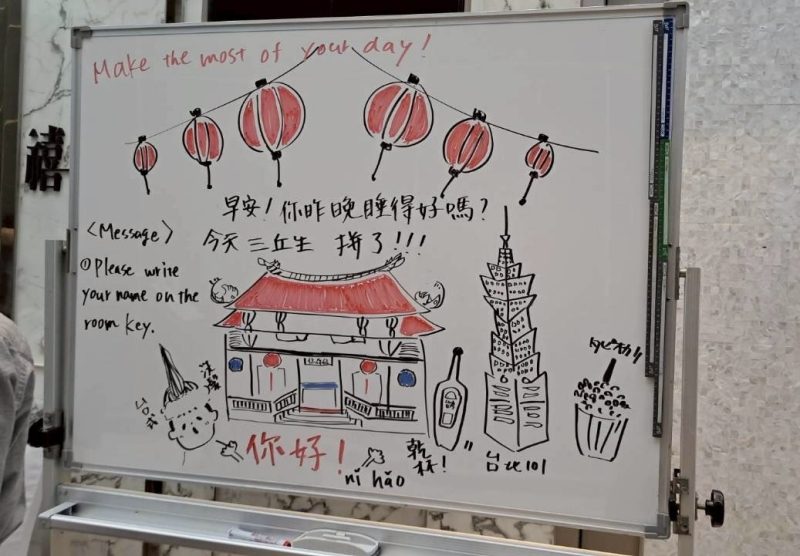 Make the most of your day!
禧
早安!你昨晚睡得好嗎?
今天三丘生 拚了!!!
<Message>
①Please write
your name on the
room key.
你好!
nǐ hǎo
乾杯!
台北101